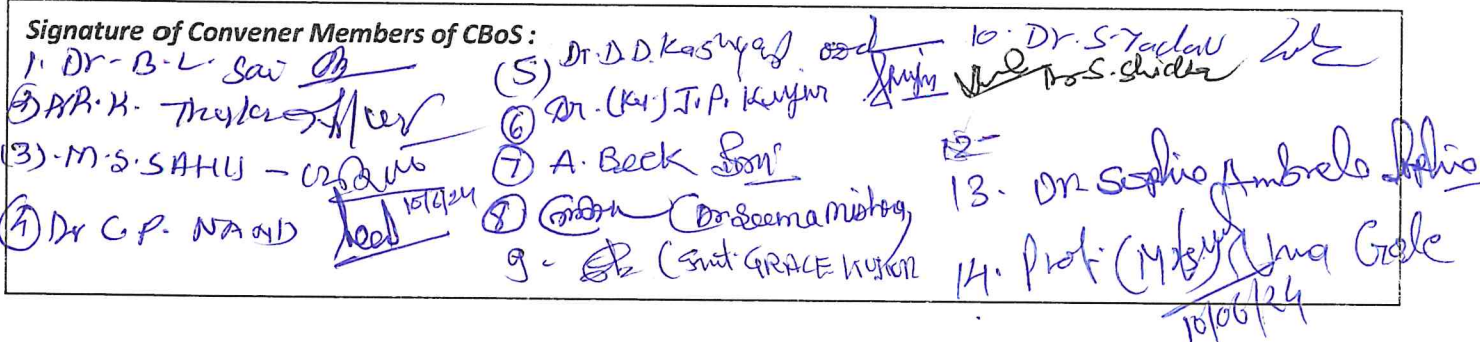 Signature of Convener Members of CBoS :
1. Dr - B.L. Sai
(3). M.S. SAHU -
④ Dr C.P. NAND 10/6/24
(5) Dr. D.D. Kashyap
⑥ Dr. (Ku.) J.P. Kujur
⑦ A. Beck
⑧ (Dr Seema Mishra)
9 - (Smt. GRACE KUJUR
10. Dr. S. Yadav
12-
13. Dr. Sophia Ambrele
14. Prof. (Mrs) Uma Gole
10/06/24